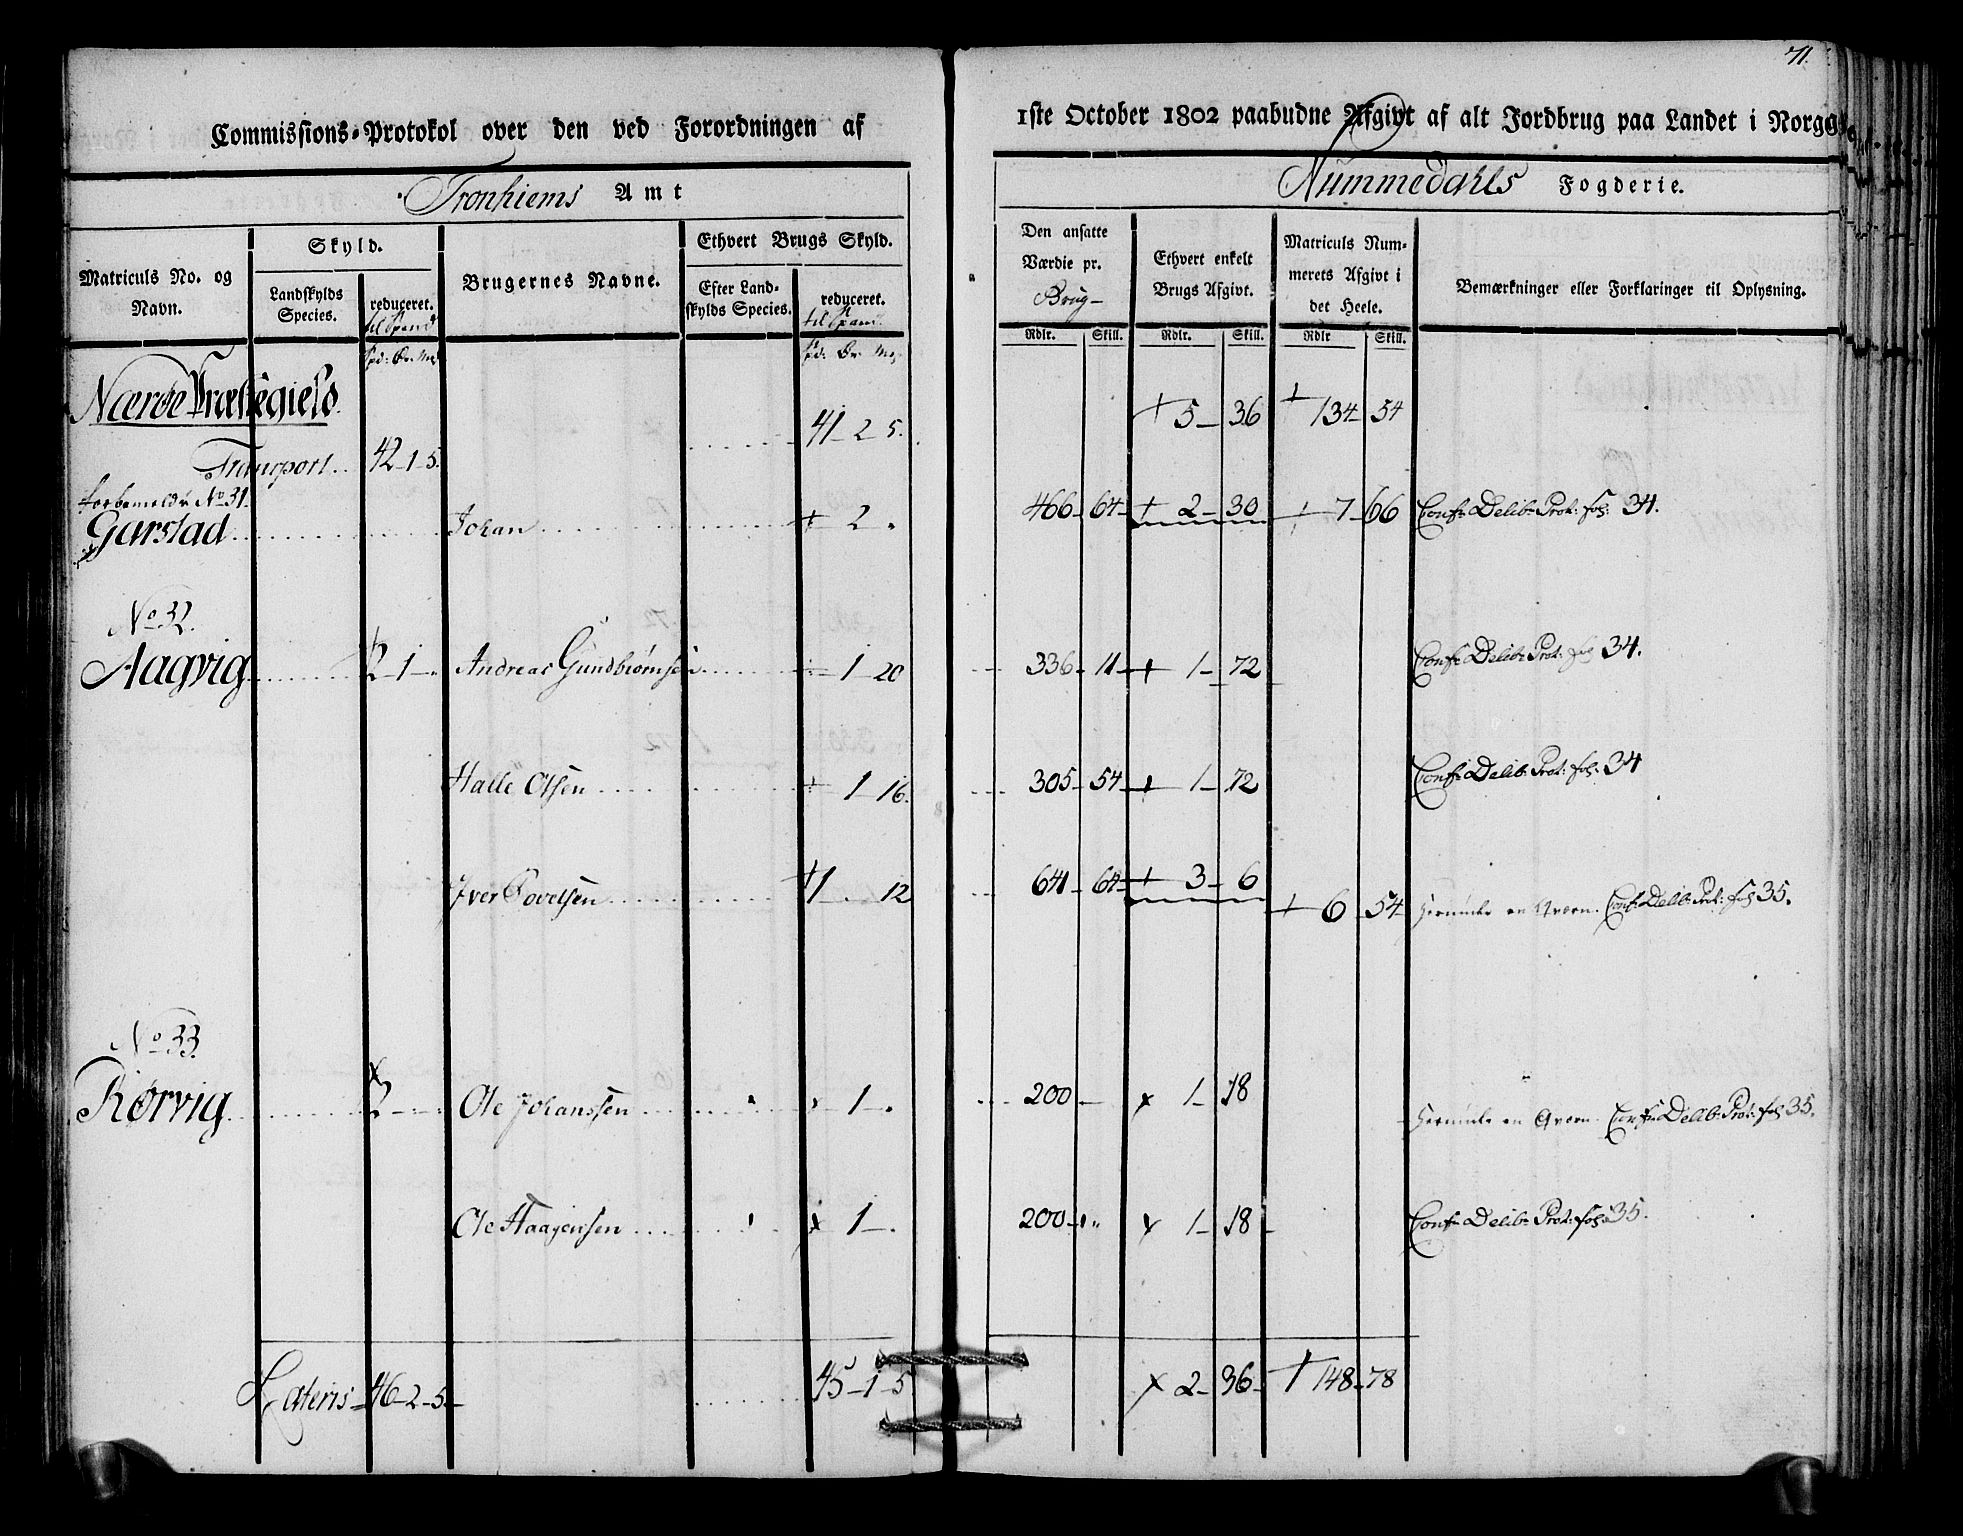 71.
Commissions-Protokol over den ved Forordningen af 1ste October 1802 paabudne Afgivt af alt Jordbrug paa Landet i Norge
Tronhiems Amt
Nummedahls Fogderie.
Matriculs No. og Navn.
Skyld.
Landskylds Species.
reduceret. til Spand
Brugernes Navne.
Ethvert Brugs Skyld.
Efter Landskylds Species.
reduceret. til Spand.
Den ansatte Værdie pr. Brug
Ethvert enkelt Brugs Afgivt.
Matriculs Nummerets Afgivt i det Heele.
Bemærkninger eller Forklaringer til Oplysning.
Rdlr. Skill. Rdlr. Skill. Rdlr Skill.
Nærøe Præstegield
Transport.. 42-1-5. 41-2-5. + 5-36 + 134-54
forbemeldte No 31.
Garstad Johan + 2. 466-64 + 2-30 + 7-66 Conf: Delib: Prot: fol: 34.
No 32.
Aagvig 2-1-. Andreas Gundbiørnsen 1-20 336-11 + 1-72 Conf: Delib: Prot: fol 34.
Halle Olsen + 1-16. 305-54 + 1-72 Conf: Delib: Prot: fol: 34
Iver Povelsen + 1. 12 641-64 + 3-6 + 6-54 herunder en Qværn. Conf: Delib: Prot: fol 35.
No 33.
Rørvig 2-- Ole Johanssen 1-. 200 x 1-18 herunder en Qværn. Conf: Delib: Prot: fol 35.
Ole Haagensen x 1-. 200 x 1-18 Conf: Delib: Prot: fol: 35.
Lateris 46-2-5 45-1-5 x 2-36 + 148-78